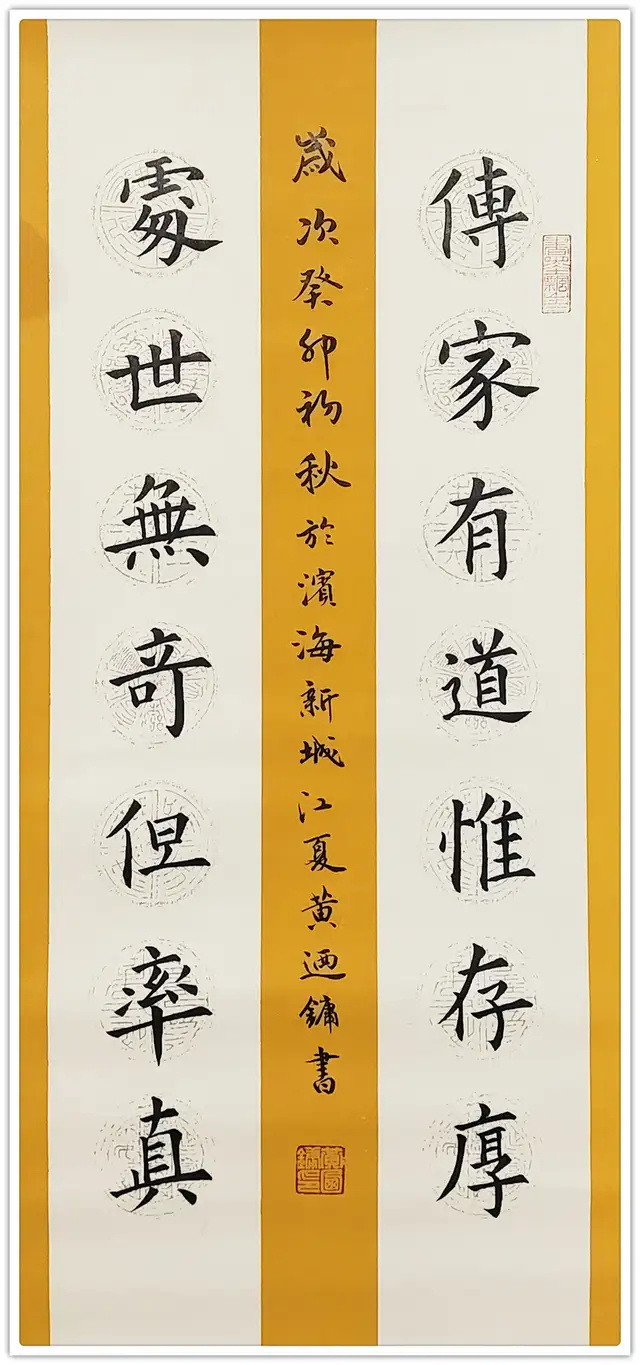 傳家有道惟存厚
歲次癸卯初秋於濱海新城江夏黃迺鏞書
處世無奇但率真